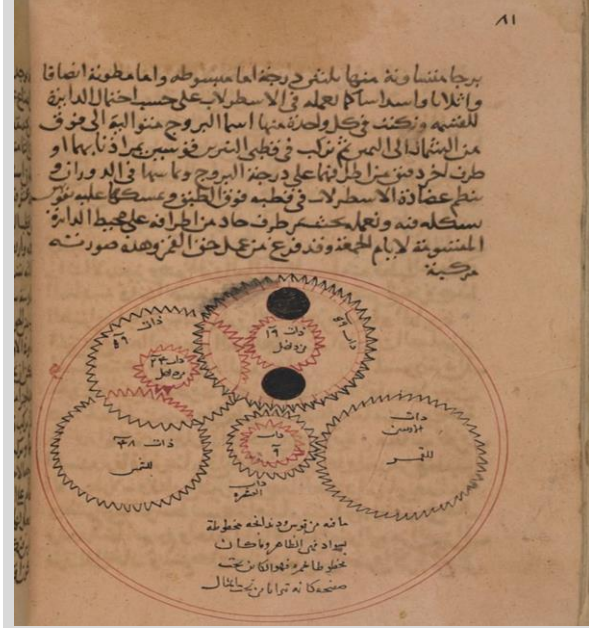 ٨١
برجا متساوية منها بثلثين درجة اما مبسوطه واما مطوية انصافا
واثلاثا واسداسا كما نعمله في الاسطرلاب على حسب احتمال الدايرة
للقسمه ونكتب في كل واحدة منها اسما البروج متوالية الى فوق
من الشمال الى اليمين ثم نركب في قطبي النيرين
طرف اخر دقيق من اطرافها على درجة البروج وتماسها في الدوران و
ننظم عضادة الاسطرلاب في قطبه فوق الطبق ونمسكها عليه بفرس
نشكله فيه ونعمله بحيث يمر طرف حاد من اطرافه على محيط الدايرة
المقسومة لايام الجمعة وقد فرغ من عمل حق القمر وهذه صورته
مركبة
ذات ٥٩
ذات ١٩
ذات ٥٩
ذات ٢٤
ذات ٤٨
للشمس
ذات
٩
ذات
العشره
ذات
للقمر
ما فيه من قوس ودندانجه مخطوطة
بسواد فهي الظاهر وما كان
صفحه كانه ترابا من تحت